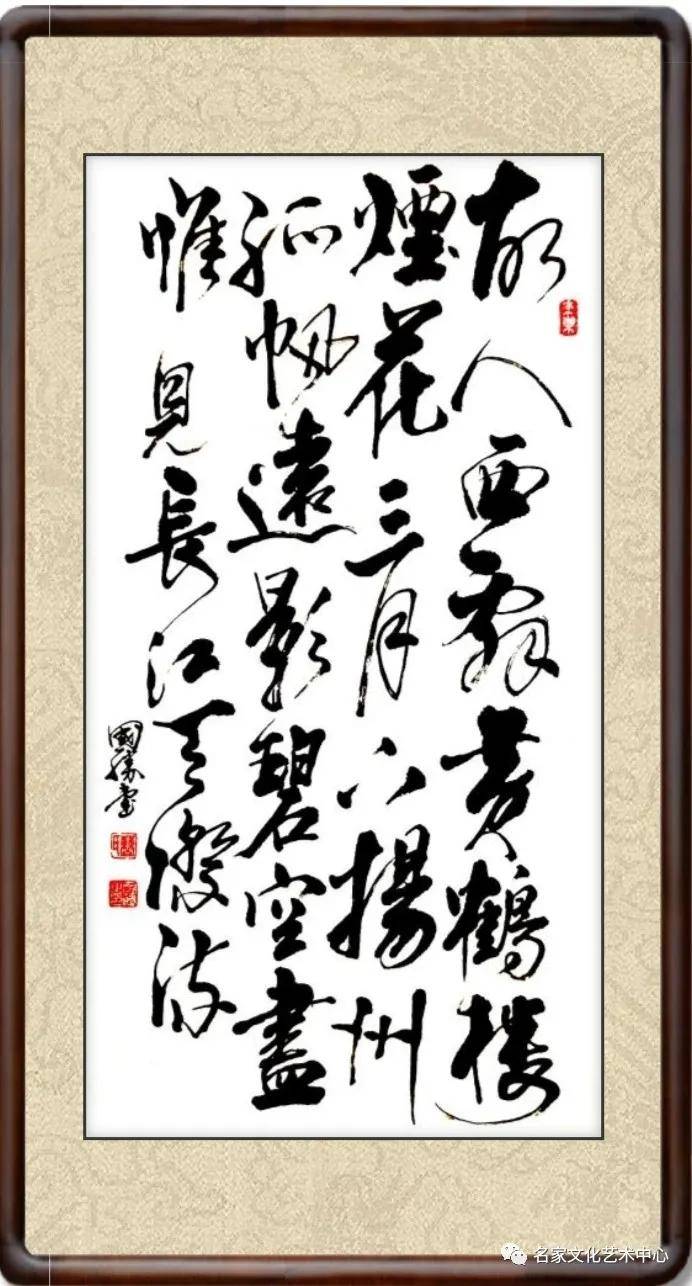 故人西辭黄鶴樓
煙花三月下揚州
孤帆遠影碧空盡
惟見長江天際流
國勝書
名家文化艺术中心